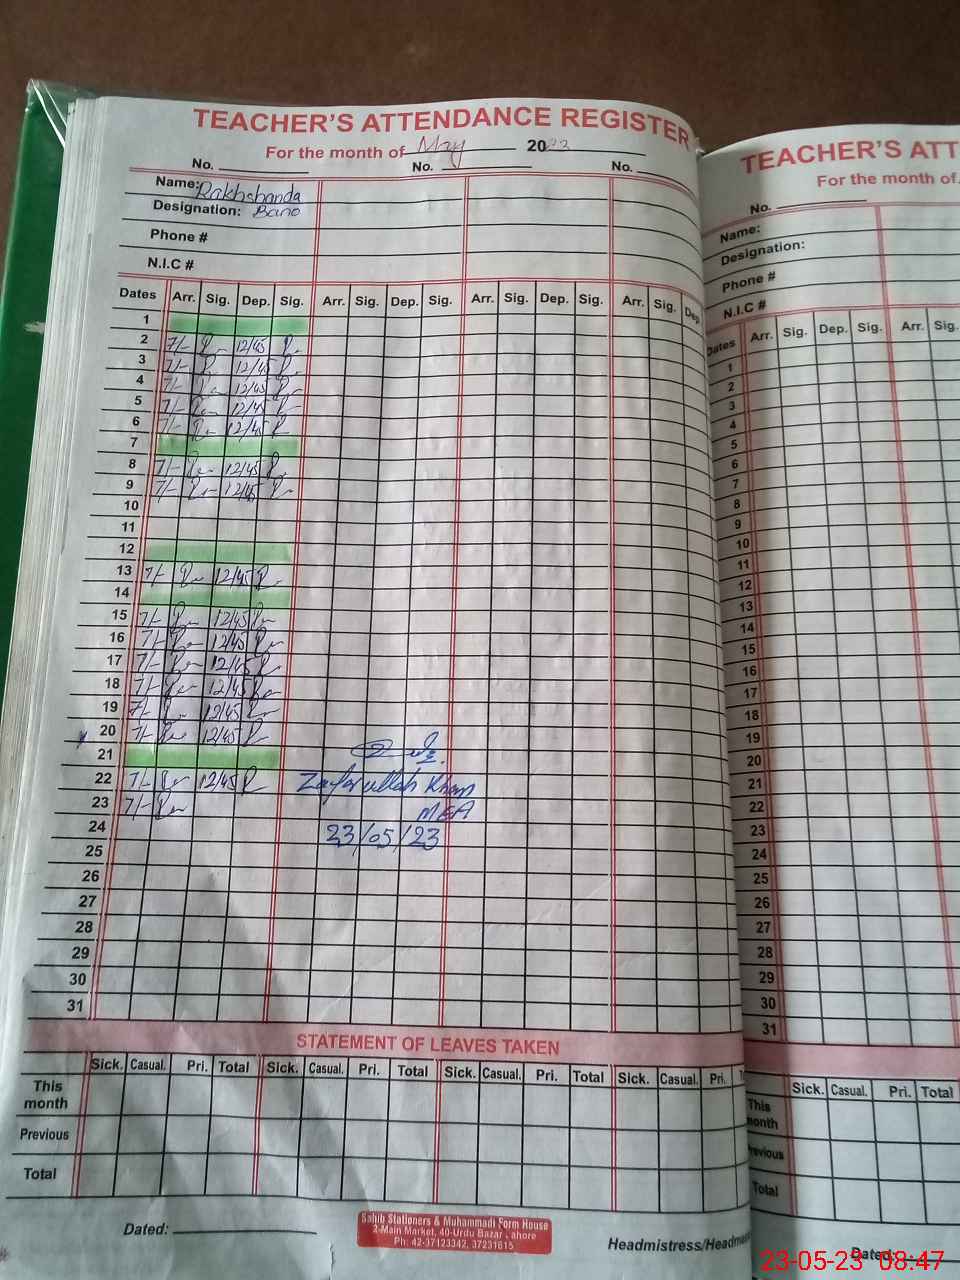 TEACHER'S ATTENDANCE REGISTER
For the month of May 2023
No. No. No.
Name: Rakhshanda
Designation: Bano
Phone #
N.I.C #
Dates Arr. Sig. Dep. Sig. Arr. Sig. Dep. Sig. Arr. Sig. Dep. Sig. Arr. Sig. Dep
1
2 7/- 12/45
3 7/- 12/45
4 7/- 12/45
5 7/- 12/45
6 7/- 12/45
7
8 7/- 12/45
9 7/- 12/45
10
11
12
13 7/- 12/45
14
15 7/- 12/45
16 7/- 12/45
17 7/- 12/45
18 7/- 12/45
19 7/- 12/45
20 7/- 12/45
21
22 7/- 12/45 Zafarullah Khan
23 7/- MEA
24 23/05/23
25
26
27
28
29
30
31
STATEMENT OF LEAVES TAKEN
Sick. Casual. Pri. Total Sick. Casual. Pri. Total Sick. Casual. Pri. Total Sick. Casual. Pri.
This month
Previous
Total
Dated:
Sahib Stationers & Muhammadi Form House
2-Main Market, 40-Urdu Bazar, ahore
Ph: 42-37123342, 37231615
Headmistress/Headma
TEACHER'S ATT
For the month of
No.
Name:
Designation:
Phone #
N.I.C #
Dates Arr. Sig. Dep. Sig. Arr. Sig.
1
2
3
4
5
6
7
8
9
10
11
12
13
14
15
16
17
18
19
20
21
22
23
24
25
26
27
28
29
30
31
Sick. Casual. Pri. Total
This month
revious
Total
Dated:
23-05-23 08:47